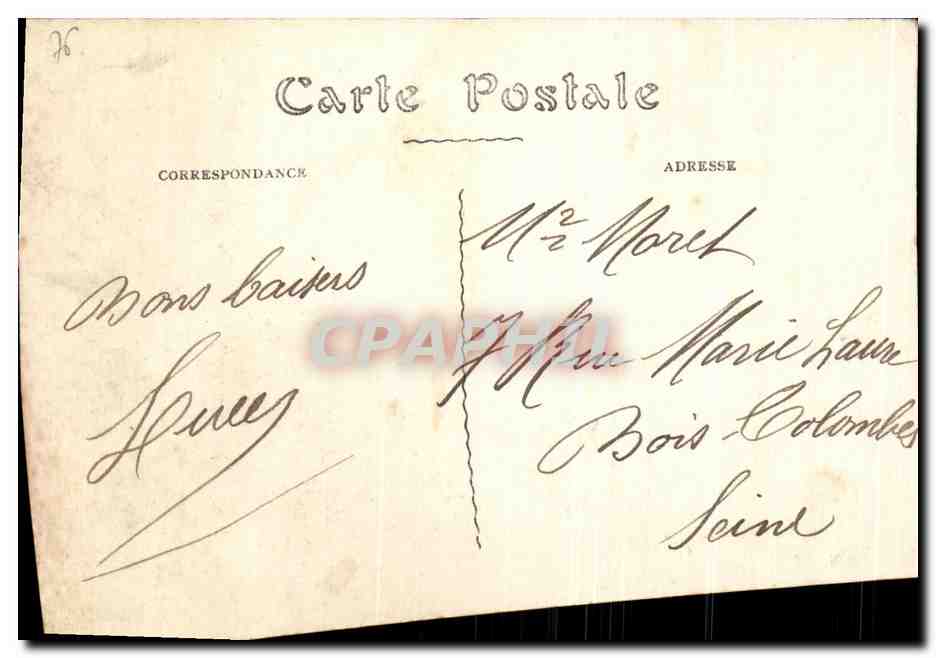 76
Carte Postale
CORRESPONDANCE
ADRESSE
Bons baisers
Mr Moret
7 Rue Marie Laure
Bois-Colombes
Seine
CPAPHIL